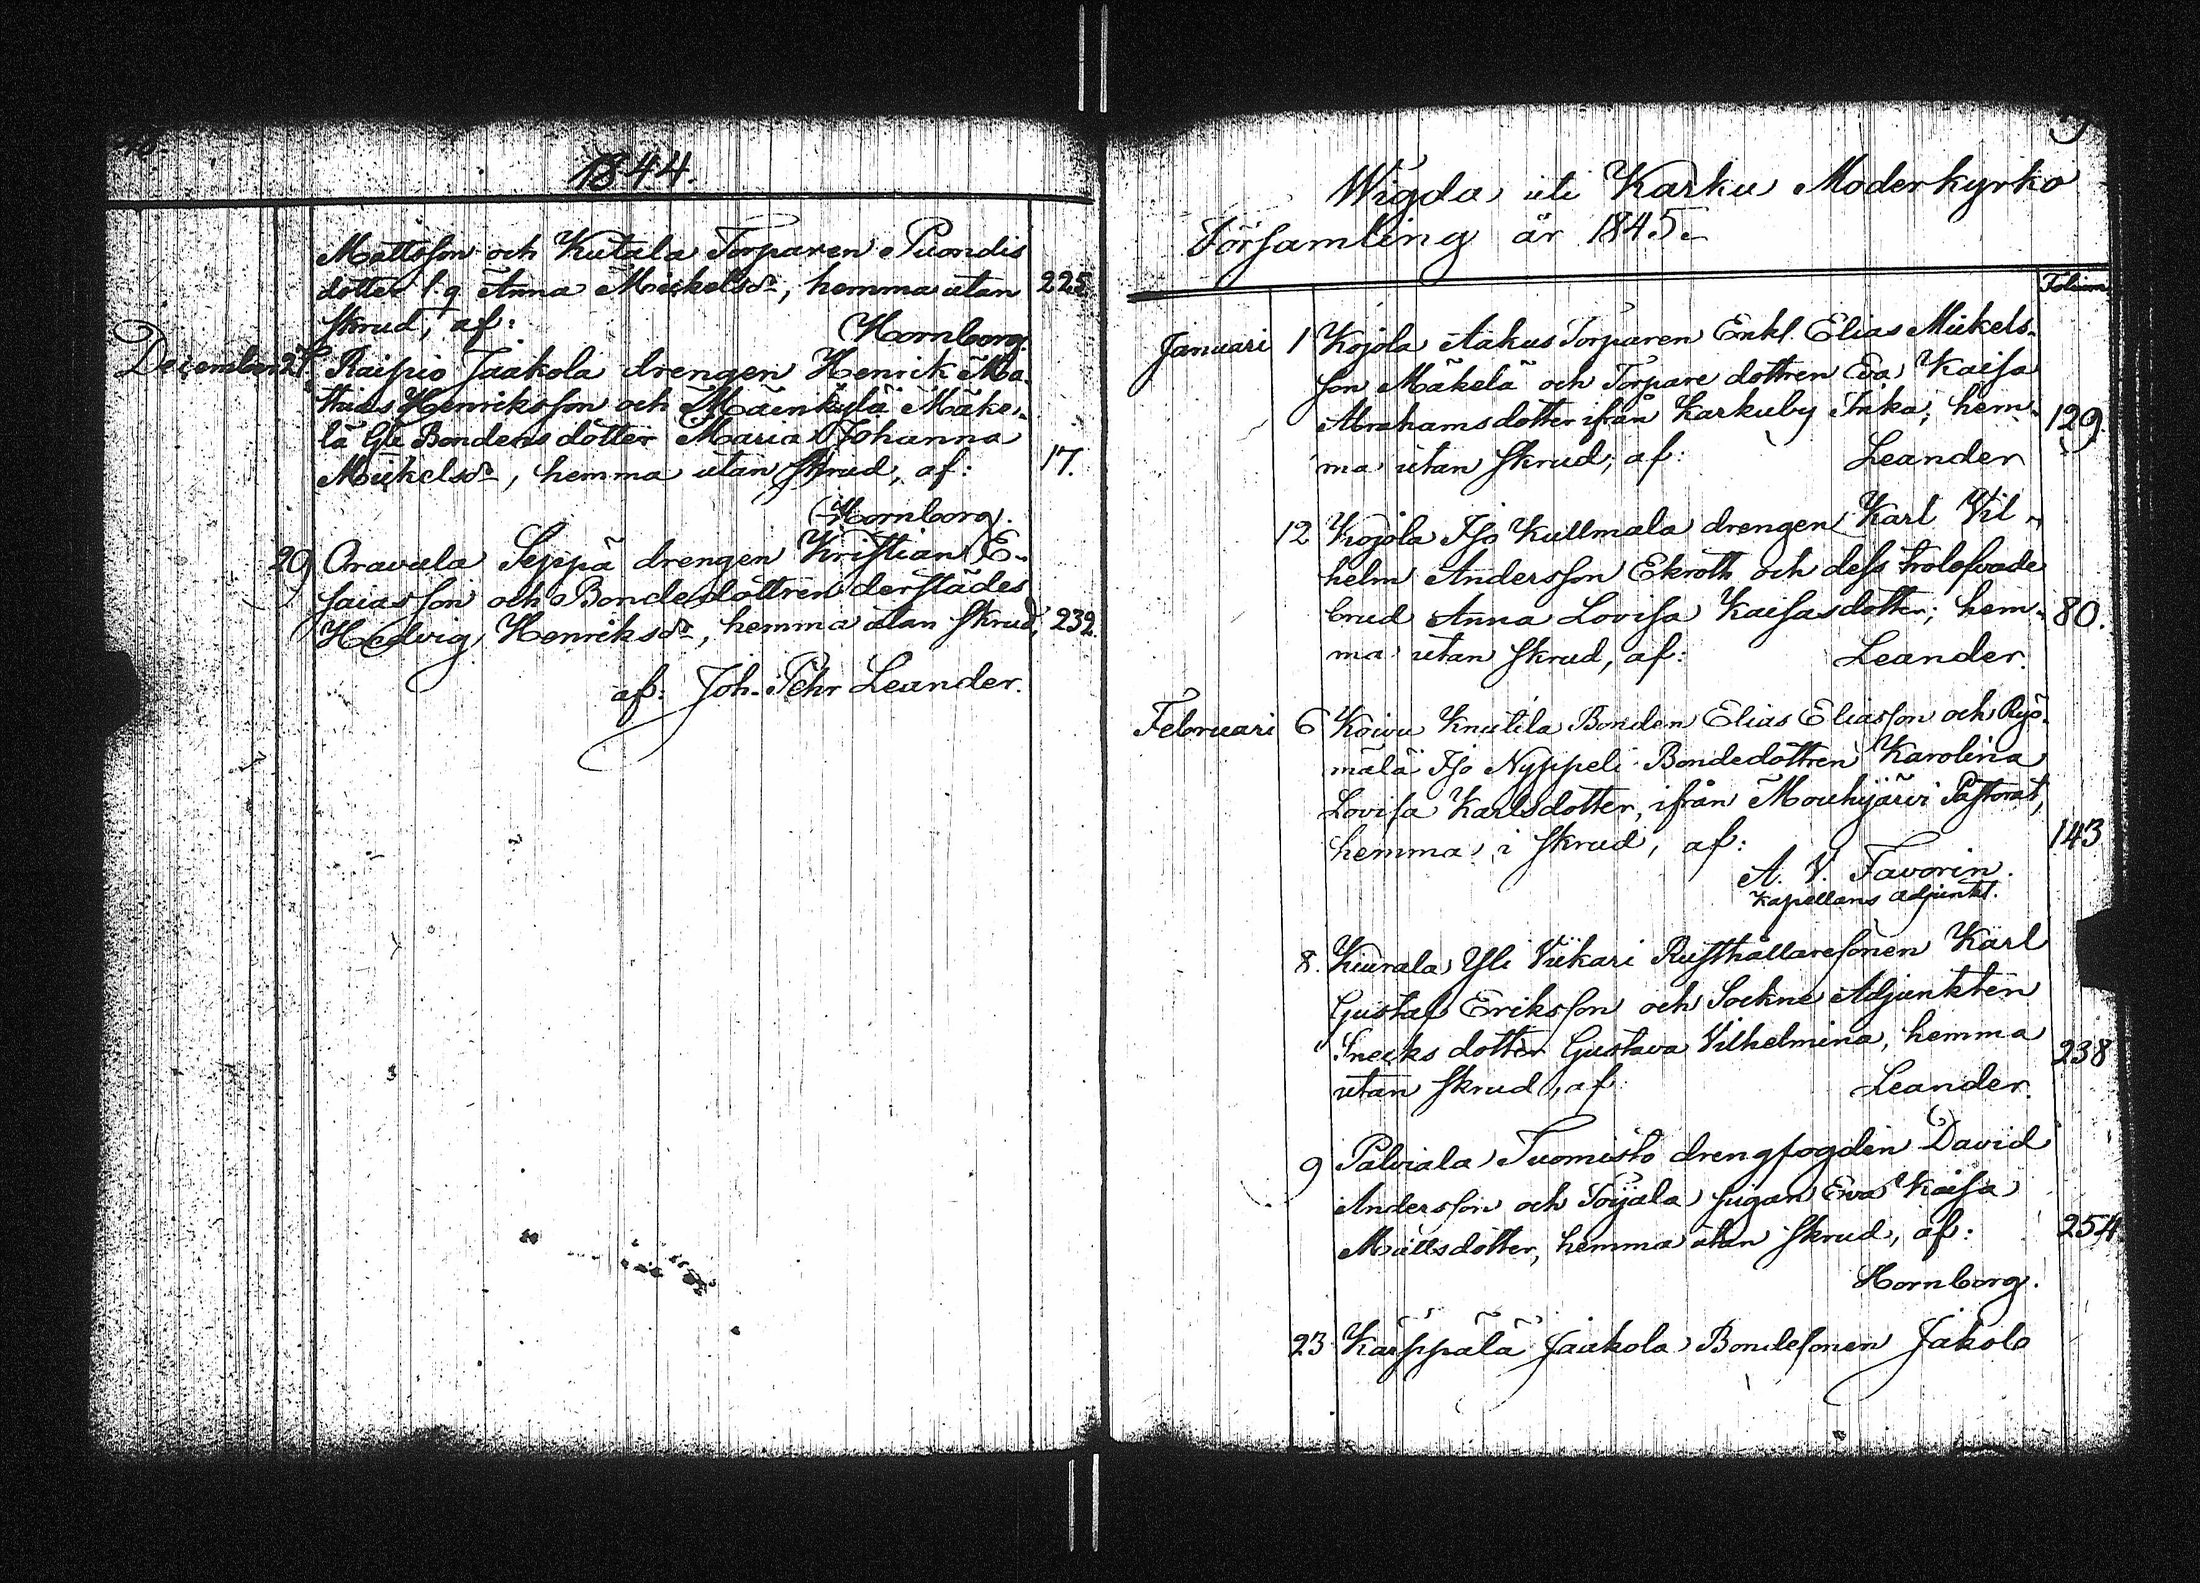 1844.
Mattsson och Kutala Torparen Puondis
dotter l. g Anna Mickelsdr, hemma utan 225.
skrud, af:
Hornborg.
December 27. Raipio Jaakola drengen Henrik Ma-
thias Henriksson och Mäenkylä Mäke-
lä Gle Bondens dotter Maria Johanna
Mickelsdr, hemma utan skrud, af: 17.
Hornborg.
29 Aravala Seppä drengen Kristian E-
saiasson och Bondedottren derstädes
Hedvig Henriksdr, hemma utan skrud, 232.
af: Joh. Pehr Leander.
Wigda uti Karku Moderkyrko
Församling år 1845.
Folium.
Januari 1 Kojola Aakus Torparen Enkl. Elias Mickels-
son Mäkelä och Torpare dottren Eva Kaisa
Abrahamsdotter ifrån Karkuby Inka; hem- 129.
ma utan skrud; af: Leander
12 Kojola Iso Kullmala drengen Karl Vil-
helm Andersson Ekroth och dess trolofvade
brud Anna Lovisa Kaisasdotter; hem- 80.
ma utan skrud, af: Leander.
Februari 6 Koivu Knutila Bonden Elias Eliasson och Ryö-
mälä Iso Nyppeli Bondedottren Karolina
Lovisa Karlsdotter, ifrån Mouhijärvi Pastorat,
hemma i skrud, af: 143
A. V. Favorin.
Kapellans adjunkt.
8. Kiurala Yli Viikari Rusthållaresonen Karl
Gustaf Eriksson och Sockne Adjunkten
Snecks dotter Gustava Vilhelmina, hemma 238
utan skrud, af: Leander.
9 Palviala Tuomisto drengfogden David
Andersson och Toijala pigan Eva Kaisa
Mattsdotter, hemma utan skrud, af: 254.
Hornborg.
23 Kärppälä Jaakola Bondesonen Jakob